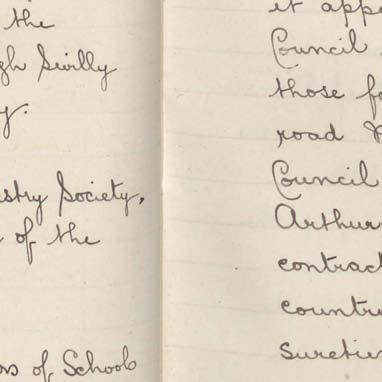 the
gh Swilly
y.
estry Society,
of the
ns of Schools
it appe
Council
those fo
road
Council
Arthur
contract
countr
Suretie